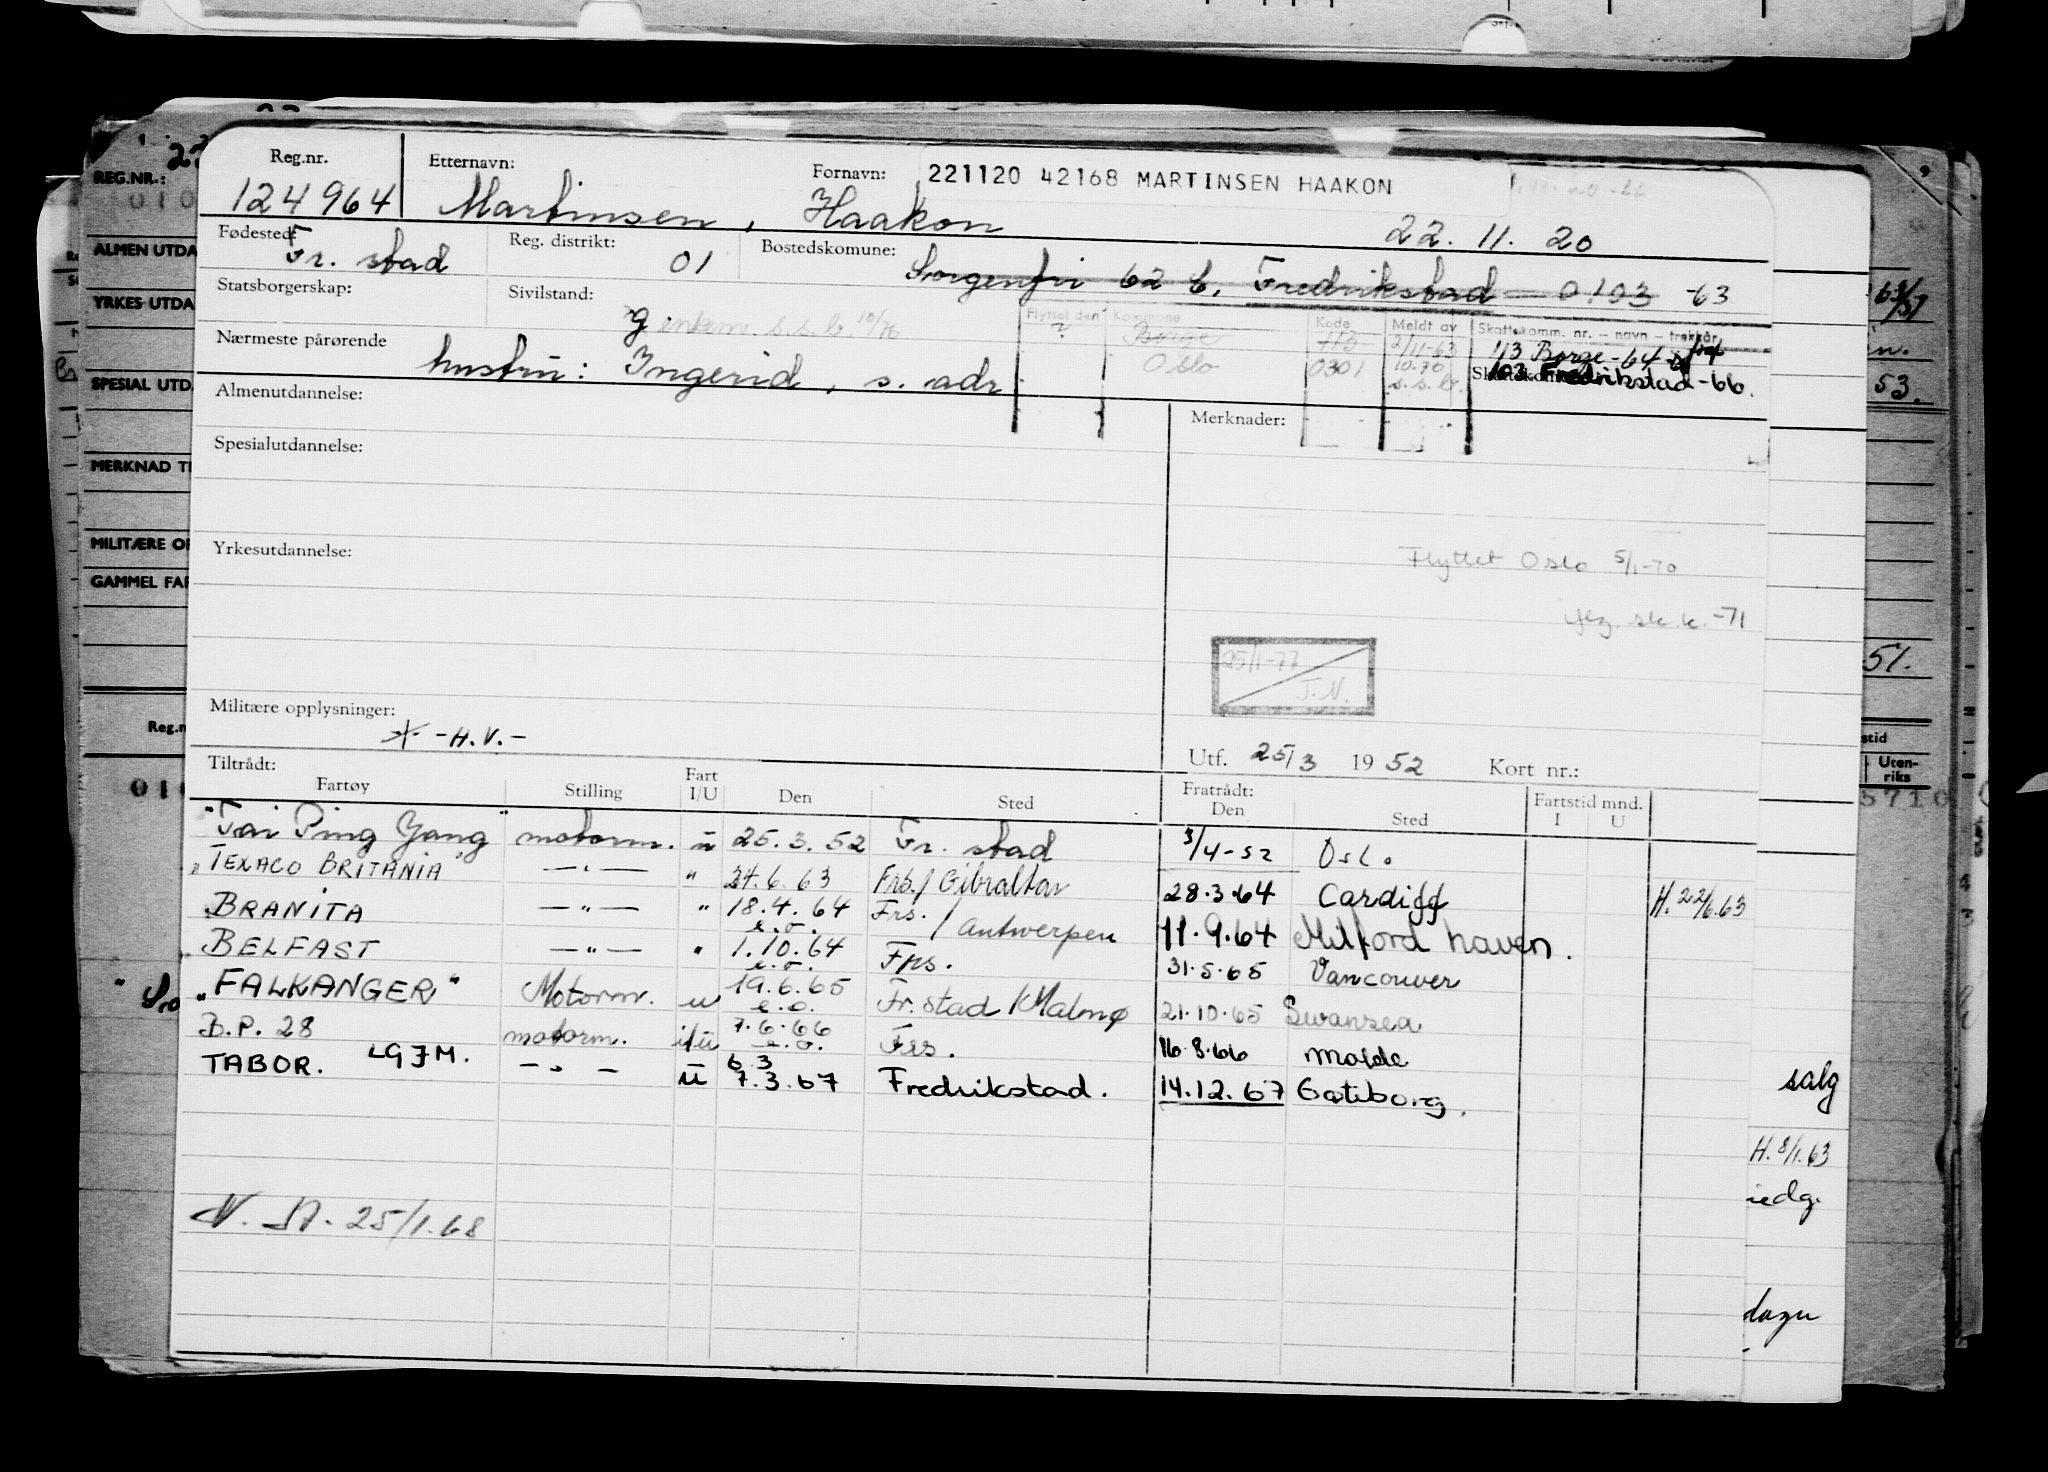 Reg.nr. Etternavn: Fornavn: 221120 42168 MARTINSEN HAAKON
124964 Martinsen, Haakon 22.11.20
Fødested: Fr. stad Reg. distrikt: 01 Bostedskomune: Sorgenfri 62 b, Fredrikstad — 0103 -63
Statsborgerskap: Sivilstand: g enkem. s.s.b. 10/76
Flyttet den Kommune Kode Meldt av Skattekomm. nr. – navn – trekkår
? Borge 113 2/11-63 113 Borge -64
Oslo 0301 10.70 s.s.b. 103 Fredrikstad -66.
Nærmeste pårørende hustru: Ingerid, s. adr
Almenutdannelse: Merknader:
Spesialutdannelse:
Yrkesutdannelse:
Flyttet Oslo 5/1-70
sk.k. -71
25/1-77
J.N.
Militære opplysninger: -H.V.-
Utf. 25/3 1952 Kort nr.:
Tiltrådt: Fratrådt:
Fartøy Stilling Fart I/U Den Sted Den Sted Fartstid mnd. I U
"Tai Ping Yang" motorm. u 25.3.52 Fr. stad 3/4-52 Oslo
"TEXACO BRITANIA" —"— " 24.6.63 Frs./Gibraltar 28.3.64 Cardiff H.22/6.63
BRANITA —"— " 18.4.64 e.o. Frs./Antwerpen 11.9.64 Milford haven.
BELFAST —"— " 1.10.64 e.o. Frs. 31.5.65 Vancouver
"FALKANGER" Motorm. u 19.6.65 e.o. Fr.stad/Malmø 21.10.65 Swansea
B.P. 28 motorm. i/u 7.6.66 e.o. Frs. 16.8.66 Molde
TABOR. LGJM. —"— u 6.3 7.3.67 Fredrikstad. 14.12.67 Gøteborg.
25/1.68
REG.NR.:
ALMEN UTDA
YRKES UTDA
SPESIAL UTD
MERKNAD T
MILITÆRE OP
GAMMEL FA
53.
51.
Uten-
riks
salg
H.8/1.63